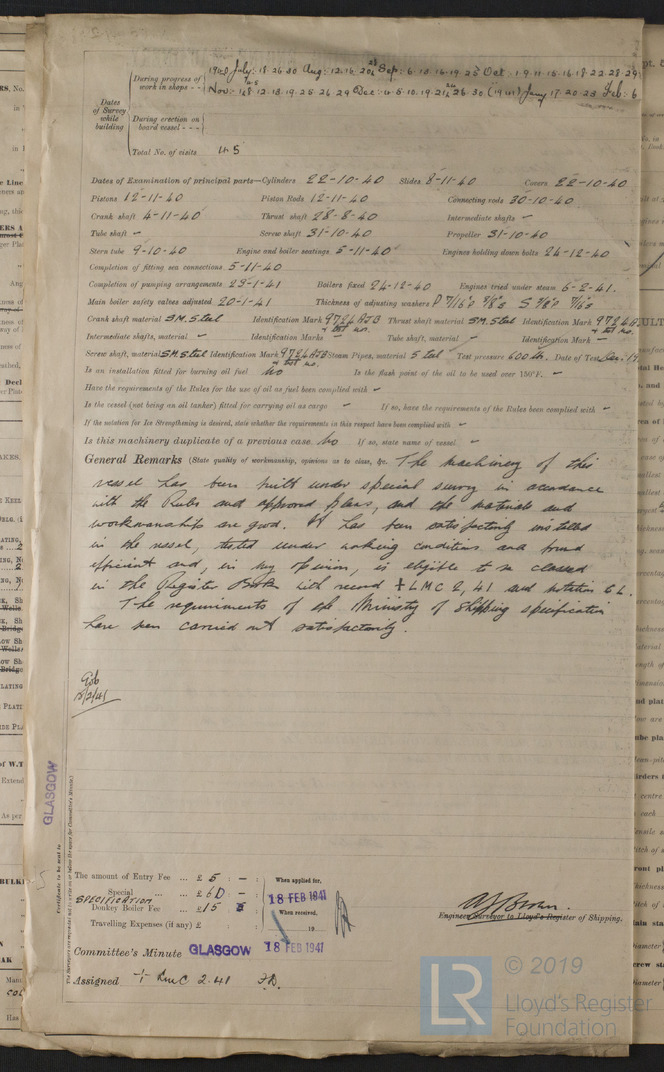 Dates of Survey while building
During progress of work in shops - - 1940 July: 18.26.30 Aug: 12.16.20 Sep: 6.10.16.19.25 Oct: 1.9.11.15.16.18.22.28.29
Nov: 12.18.19.25.26.29 Dec: 4.5.10.19.21 26.30 (1941) Jany 17.20.23 Feb: 6
During erection on board vessel - - -
Total No. of visits 45
Dates of Examination of principal parts—Cylinders 22-10-40 Slides 8-11-40 Covers 22-10-40
Pistons 12-11-40 Piston Rods 12-11-40 Connecting rods 30-10-40
Crank shaft 4-11-40 Thrust shaft 28-8-40 Intermediate shafts -
Tube shaft - Screw shaft 31-10-40 Propeller 31-10-40
Stern tube 9-10-40 Engine and boiler seatings 5-11-40 Engines holding down bolts 24-12-40
Completion of fitting sea connections 5-11-40
Completion of pumping arrangements 29-1-41 Boilers fixed 24-12-40 Engines tried under steam 6-2-41.
Main boiler safety valves adjusted 20-1-41 Thickness of adjusting washers P 7/16"P 3/8"S S 3/8"P 7/16"S
Crank shaft material S.M. Steel Identification Mark 9724 AJB & test no. Thrust shaft material S.M. Steel Identification Mark 9724 A
Intermediate shafts, material - Identification Marks - Tube shaft, material - Identification Mark -
Screw shaft, material S.M. Steel Identification Mark 9724 AJB & test no. Steam Pipes, material Steel Test pressure 600 lb. Date of Test Dec. 19
Is an installation fitted for burning oil fuel No Is the flash point of the oil to be used over 150°F. -
Have the requirements of the Rules for the use of oil as fuel been complied with -
Is the vessel (not being an oil tanker) fitted for carrying oil as cargo - If so, have the requirements of the Rules been complied with -
If the notation for Ice Strengthening is desired, state whether the requirements in this respect have been complied with -
Is this machinery duplicate of a previous case No If so, state name of vessel -
General Remarks (State quality of workmanship, opinions as to class, &c. The machinery of this
vessel has been built under special survey in accordance
with the Rules and approved plans, and the materials and
workmanship are good. It has been satisfactorily installed
in the vessel, tested under working conditions and found
efficient and, in my opinion, is eligible to be classed
in the Register Book with record + LMC 2,41 and notation CL.
The requirements of the Ministry of Shipping specification
have been carried out satisfactorily.
GLASGOW
Certificate to be sent to
The amount of Entry Fee ... £ 5 : - :
Special ... £ 60 - :
SPECIFICATION
Donkey Boiler Fee ... £ 15 : - :
Travelling Expenses (if any) £ : :
When applied for,
18 FEB 1941
When received,
19
A J Brown.
Engineer Surveyor to Lloyd's Register of Shipping.
Committee's Minute GLASGOW 18 FEB 1941
Assigned + LMC 2.41
© 2019
LR
Lloyd's Register
Foundation